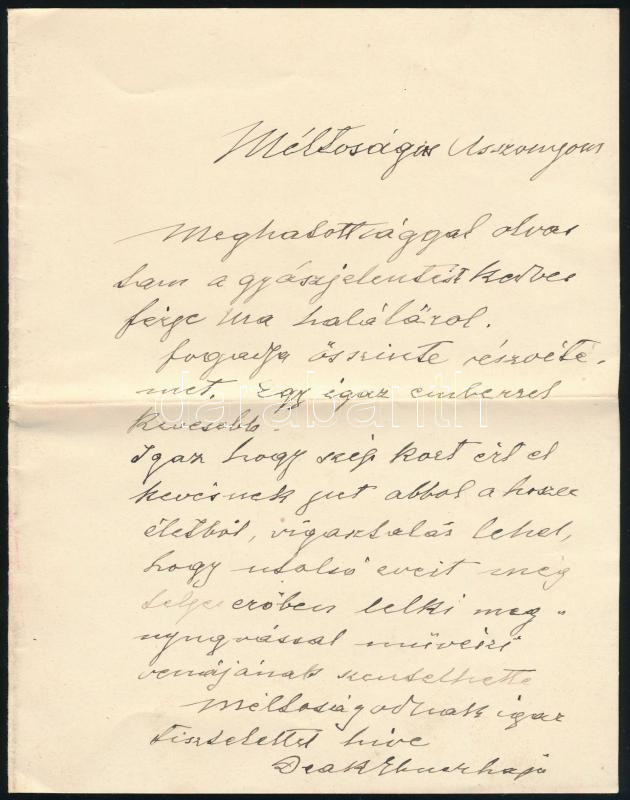 Méltoságos Asszonyom
Meghatottsággal olvas
tam a gyászjelentést kedves
férje ura haláláról.
fogadja őszinte részvéte-
met. Egy igaz emberrel
kevesebb.
Igaz hogy szép kort ért el
kevésnek jut abbol a hosszu
életből, vigasztalás lehet,
hogy utolsó éveit még
teljes erőben lelki meg-
nyugvással müvészi
vénájának szentelhette
Méltoságodnak igaz
tisztelettel hive
Deák Ebner Lajos
darabanth